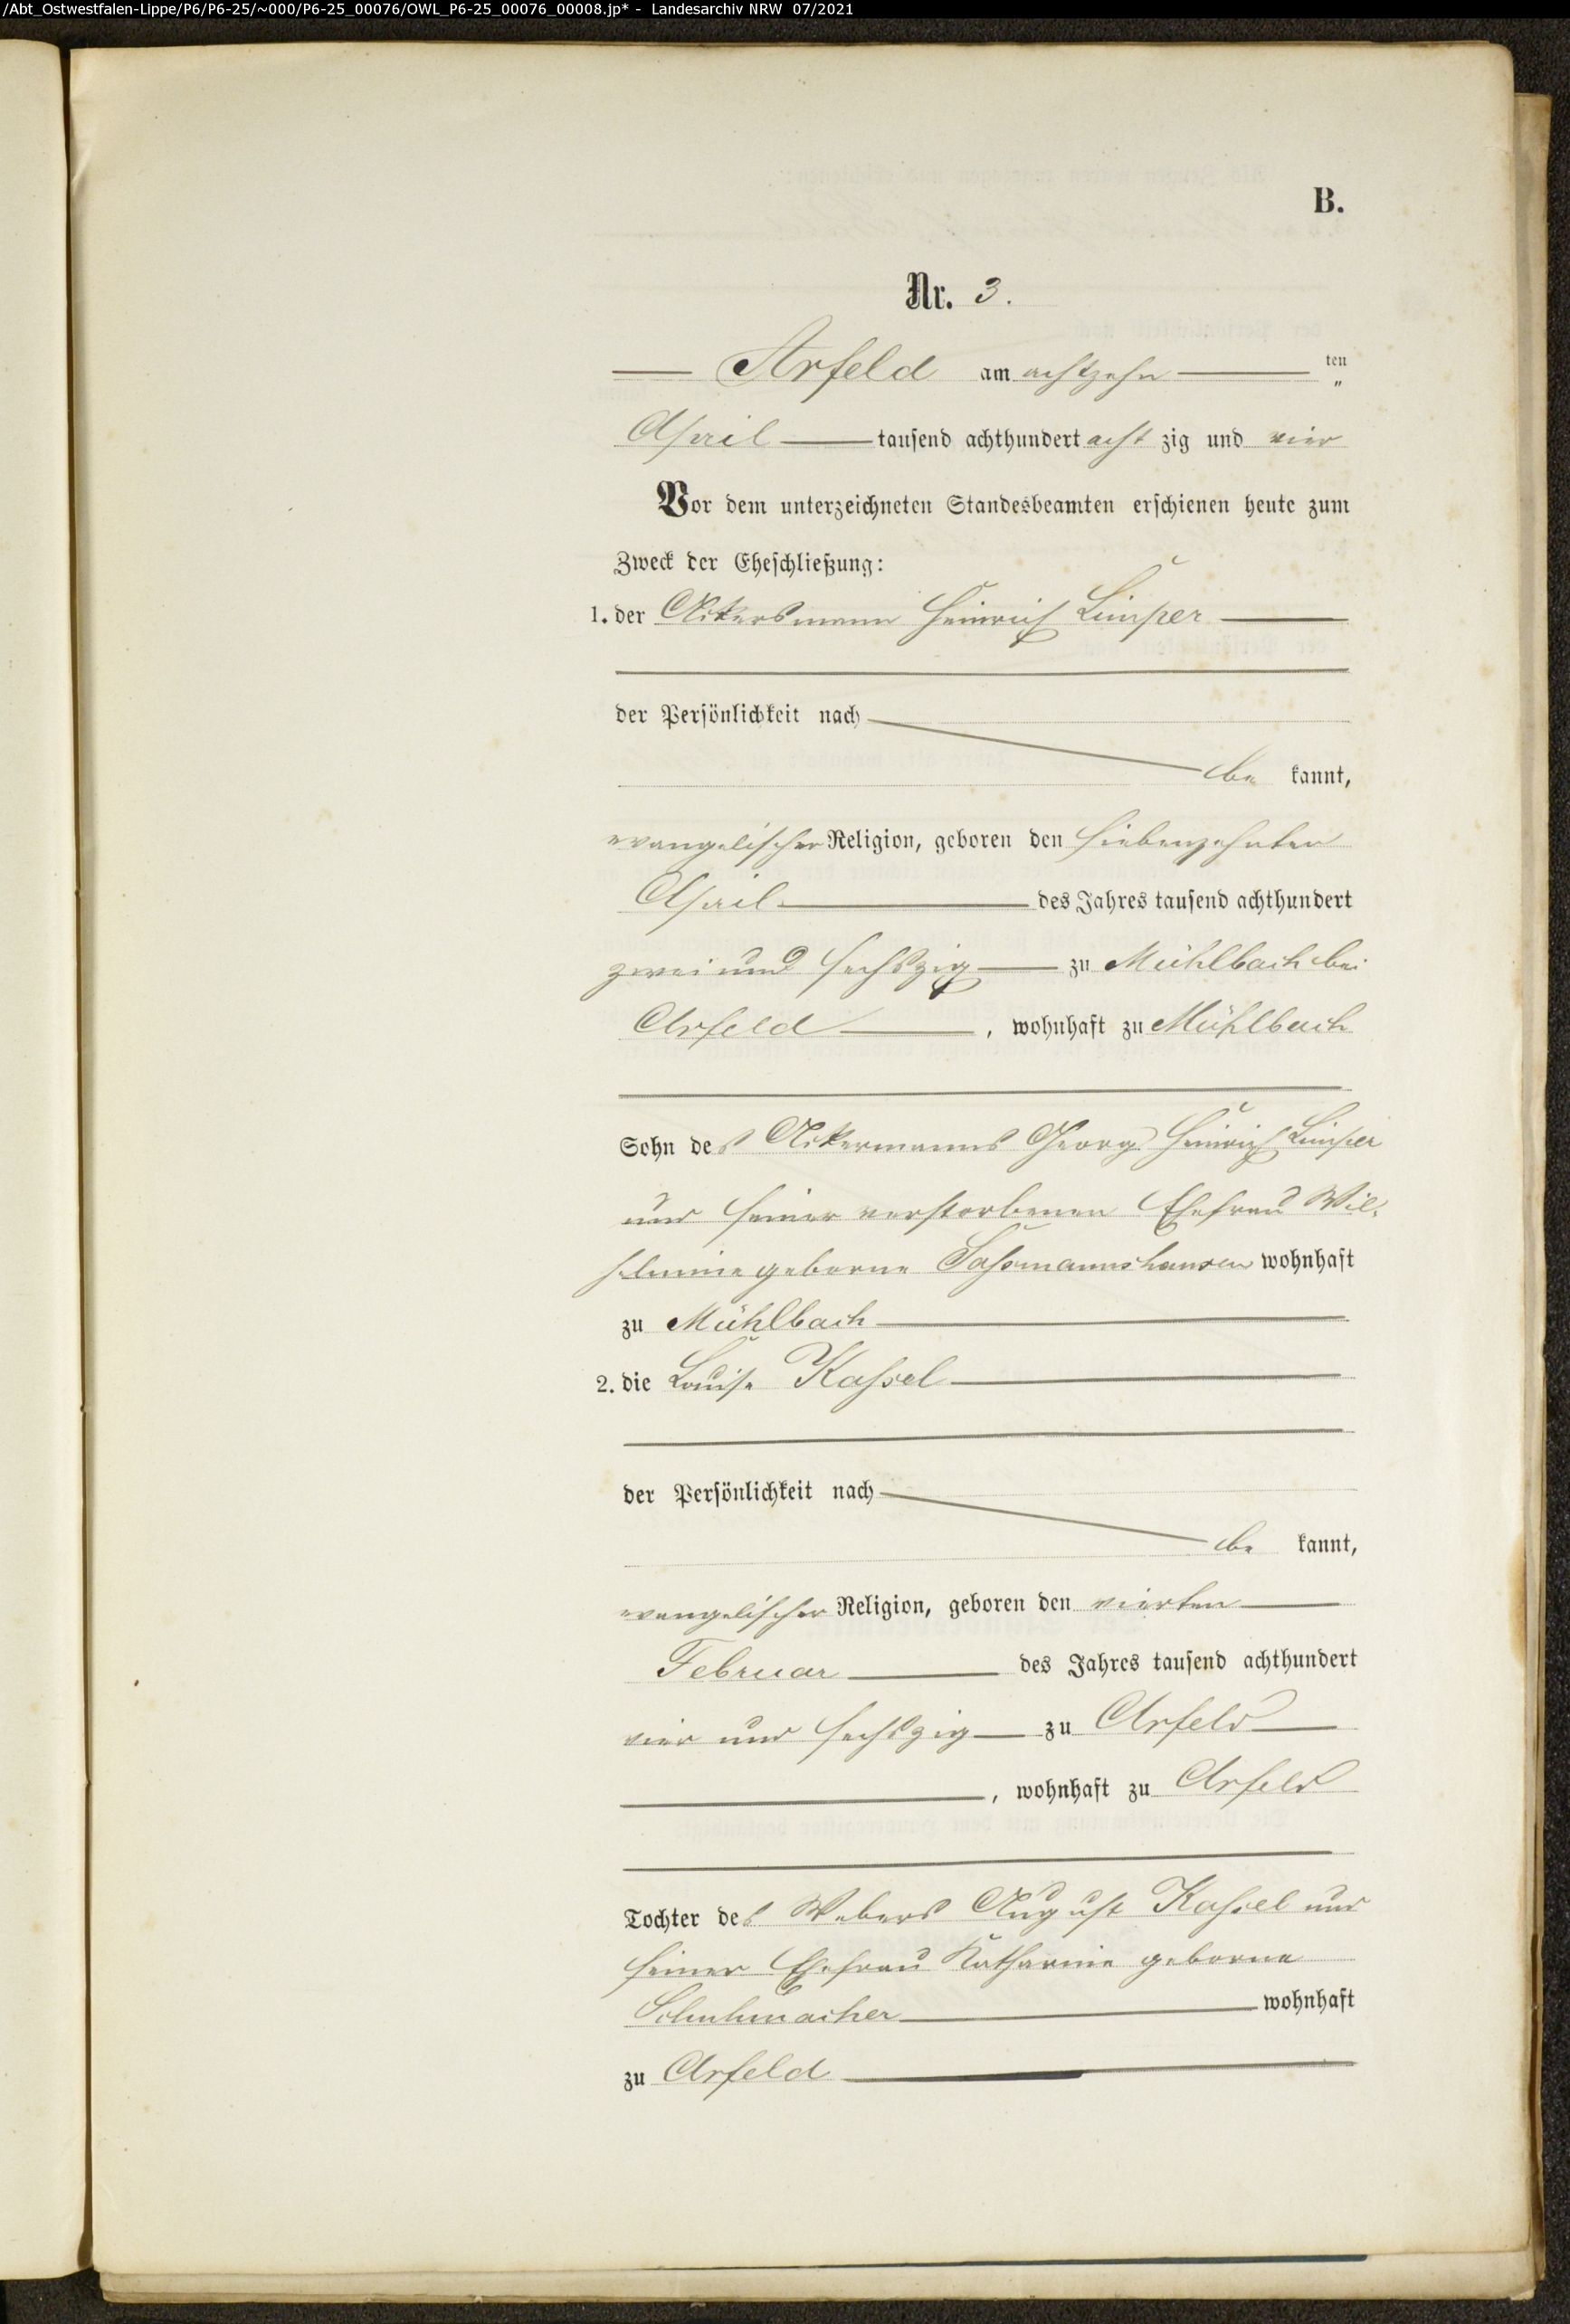 /Abt_Ostwestfalen-Lippe/P6/P6-25/~000/P6-25_00076/OWL_P6-25_00076_00008.jp* - Landesarchiv NRW 07/2021
B.
Nr. 3.
Arfeld am achtzehn ten
"
April tausend achthundert acht zig und vier
Vor dem unterzeichneten Standesbeamten erschienen heute zum
Zweck der Eheschließung:
1. der Ackersmann Heinrich Limper
der Persönlichkeit nach
be kannt,
evangelischer Religion, geboren den siebenzehnten
April des Jahres tausend achthundert
zwei und sechszig zu Mühlbach bei
Arfeld, wohnhaft zu Mühlbach
Sohn des Ackermanns Georg Heinrich Limper
und seiner verstorbenen Ehefrau Wil-
helmine geborne Sassmannshausen wohnhaft
zu Mühlbach
2. die Louise Kassel
der Persönlichkeit nach
be kannt,
evangelischer Religion, geboren den vierten
Februar des Jahres tausend achthundert
vier und sechszig zu Arfeld
, wohnhaft zu Arfeld
Tochter des Webers August Kassel und
seiner Ehefrau Katharine geborne
Schuhmacher wohnhaft
zu Arfeld